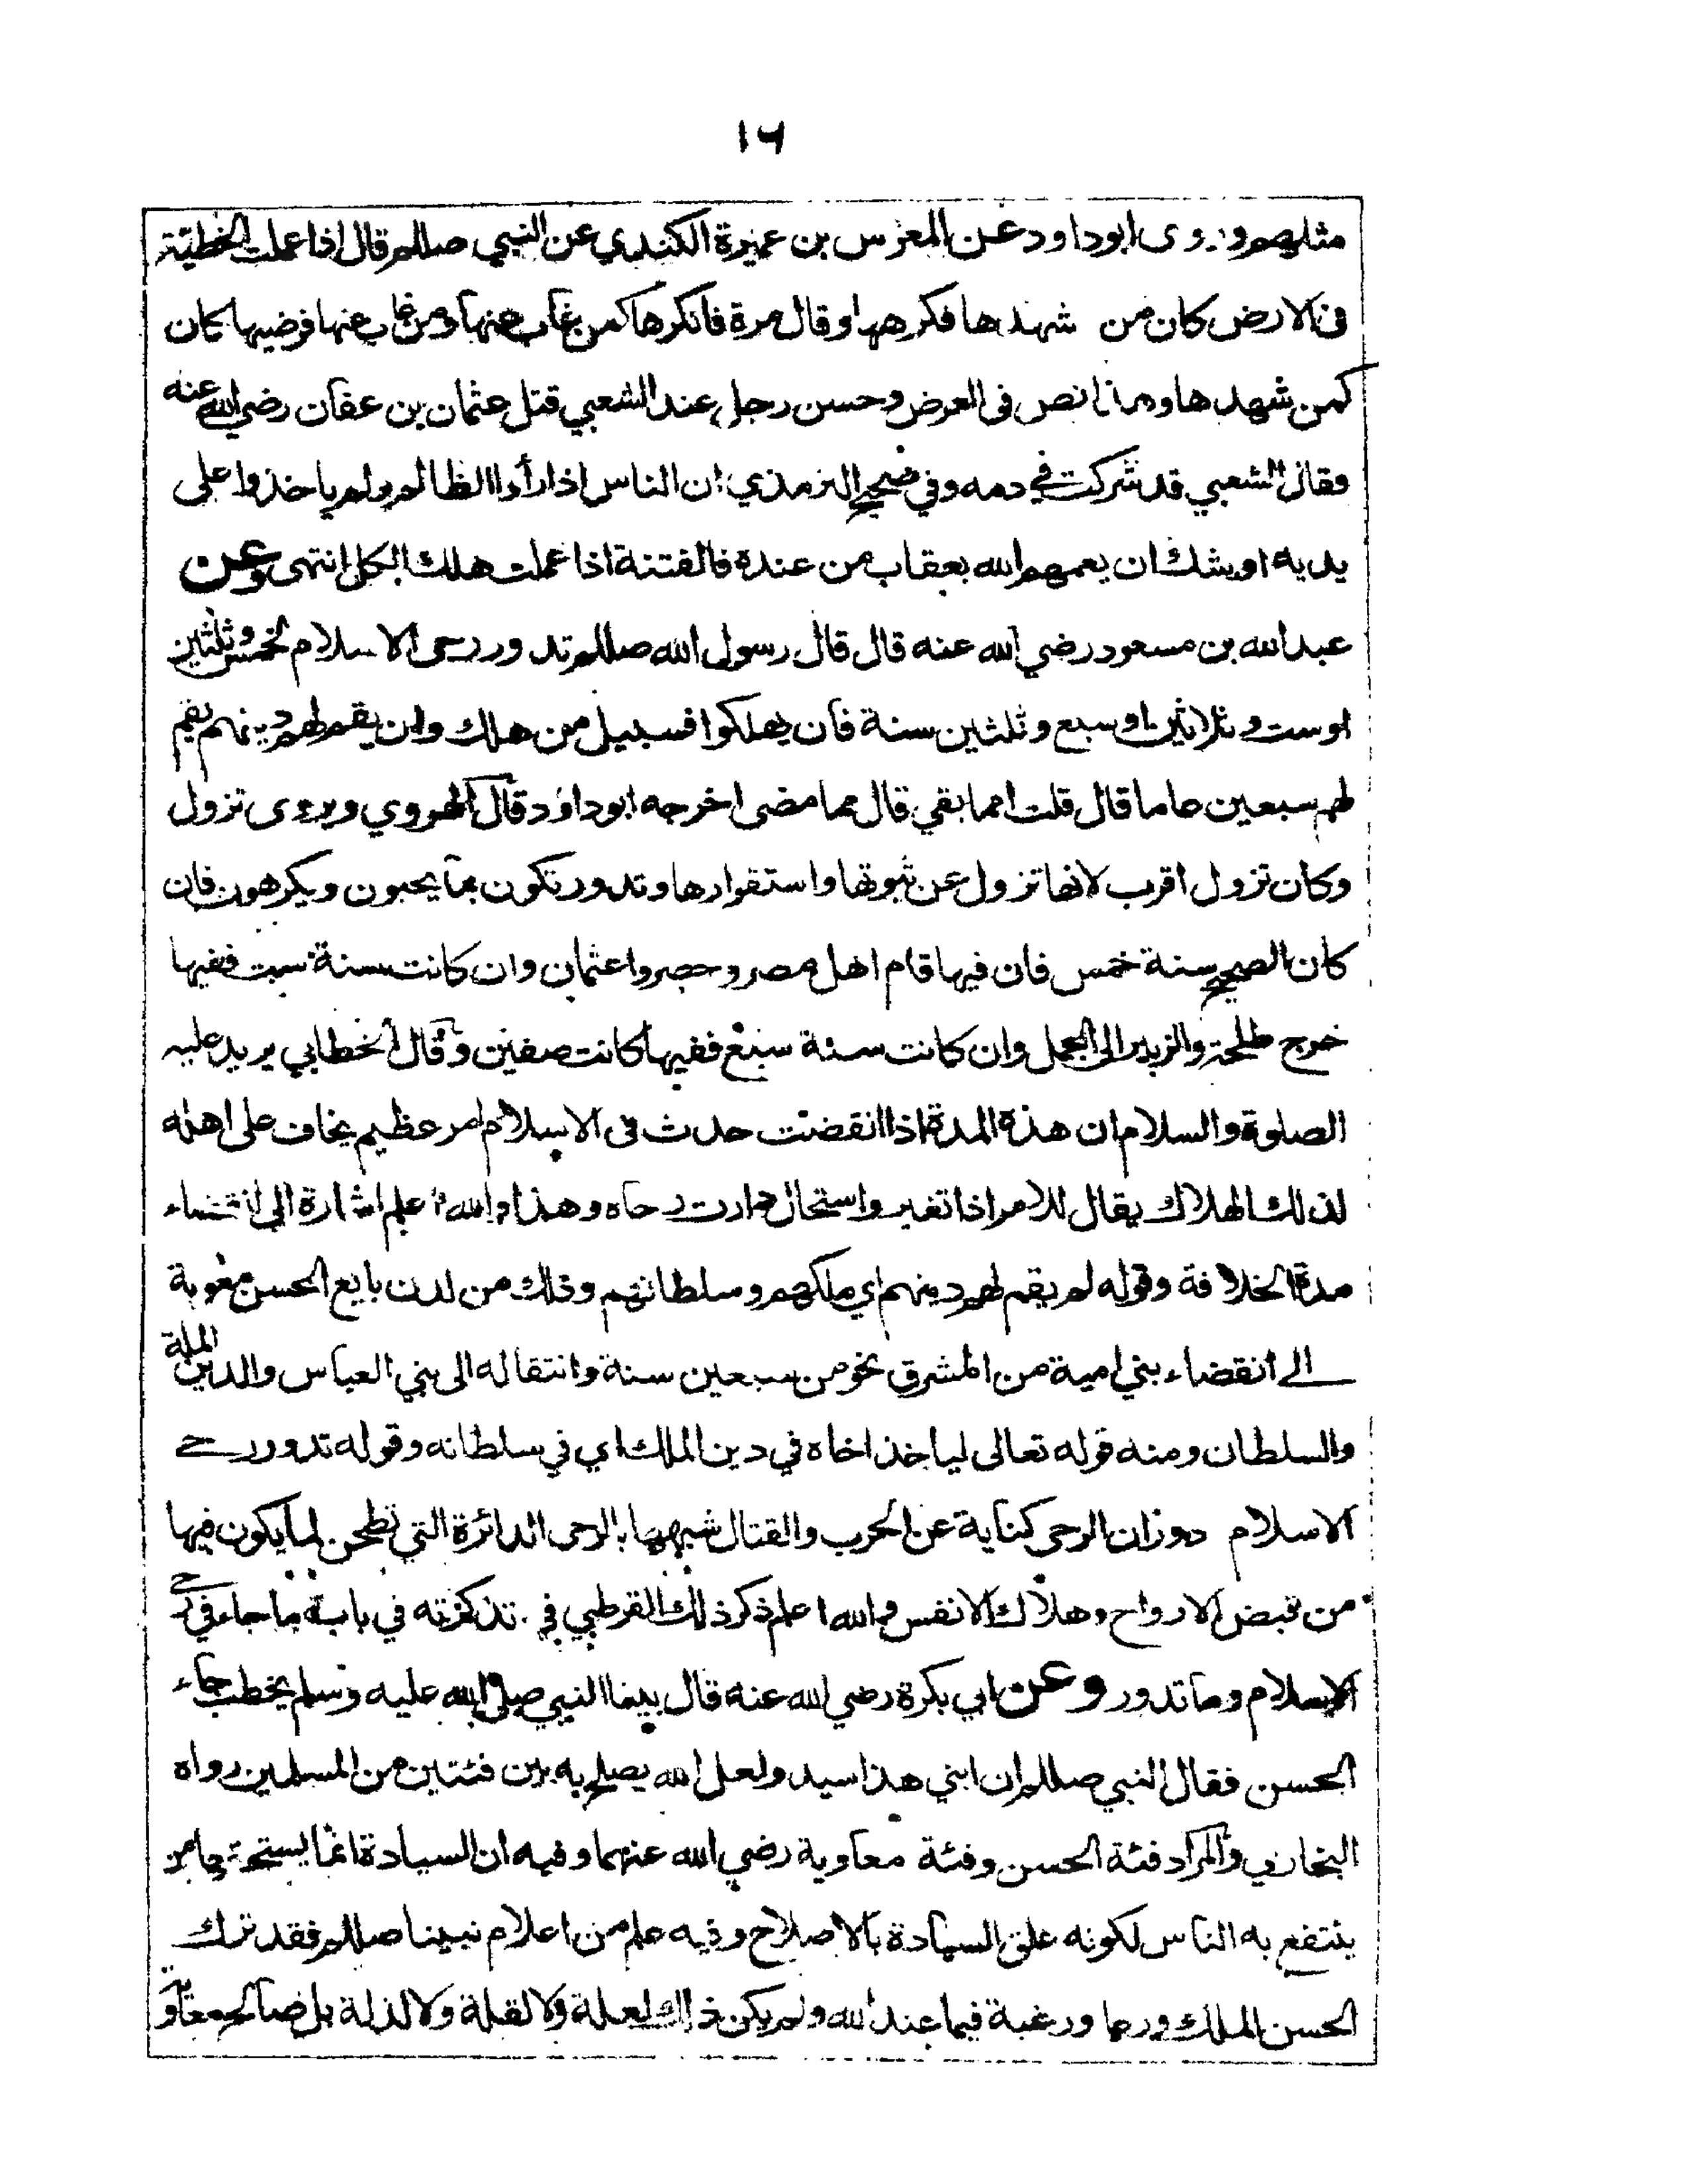 ١٦
مثلهم وروى ابوداود عن المعرس بن عميرة الكندي عن النبي صللم قال اذا عملت الخطيئة
فى الارض كان من شهدها فكرهها وقال مرة فانكرها كمن غاب عنها ومن غاب عنها فرضيها كان
كمن شهدها وهذا نصر فى العرض وحسن رجل عند الشعبي قتل عثمان بن عفان رضي الله عنه
وقال الشعبي قد شركت في دمه وفي صحيح الترمذي ان الناس اذا رأوا الظالم ولم ياخذوا على
يديه اوشك ان يعمهم الله بعقاب من عنده فالفتنة اذا عملت هلك الكل انتهى وعن
عبد الله بن مسعود رضي الله عنه قال قال رسول الله صللم تدور رحى الاسلام لخمس وثلثين
اوست وثلاثين اوسبع وثلثين سنة فان يهلكوا فسبيل من هلك وان يقم لهم دينهم يقم
لهم سبعين عاما قال قلت امما بقي قال مما مضى اخرجه ابوداؤد قال الهروي ويروى تزول
وكان تزول اقرب لانها تزول عن ثبوتها واستقرارها وتدور تكون بما يحبون ويكرهون فان
كان الصحيح سنة خمس فان فيها قام اهل مصر وحصروا عثمان وان كانت سنة ست ففيها
خرج طلحة والزبير الى الجمل وان كانت سنة سبع ففيها كانت صفين وقال الخطابي يريد عليه
الصلوة والسلام ان هذه المدة اذا انقضت حدث فى الاسلام امر عظيم يخاف على اهله
لذلك الهلاك يقال للامر اذا تغير واستحال دارت رحاه وهذا والله اعلم اشارة الى انقضاء
مدة الخلافة وقوله لم يقم لهم دينهم اي ملكهم وسلطانهم وذلك من لدن بايع الحسن معوية
الى انقضاء بني امية من المشرق نحو من سبعين سنة وانتقاله الى بني العباس والدين الملة
والسلطان ومنه قوله تعالى لياخذ اخاه في دين الملك اي في سلطانه وقوله تدور رحى
الاسلام دوران الرحى كناية عن الحرب والقتال شبهها بالرحى الدائرة التي تطحن لما يكون فيها
من قبض الارواح وهلاك الانفس والله اعلم ذكر ذلك القرطبي في تذكرته في باب ما جاء في رحى
الاسلام وما تدور وعن ابي بكرة رضي الله عنه قال بينا النبي صلى الله عليه وسلم يخطب جاء
الحسن فقال النبي صللم ان ابني هذا سيد ولعل الله يصلح به بين فئتين من المسلمين رواه
البخاري والمراد فئة الحسن وفئة معاوية رضي الله عنهما وفيه ان السيادة انما يستحقها من
ينتفع به الناس لكونه علق السيادة بالاصلاح وفيه علم من اعلام نبينا صللم فقد ترك
الحسن الملك ورعا ورغبة فيما عند الله ولم يكن ذلك لعلة ولا لقلة ولا لذلة بل صالح معاوية